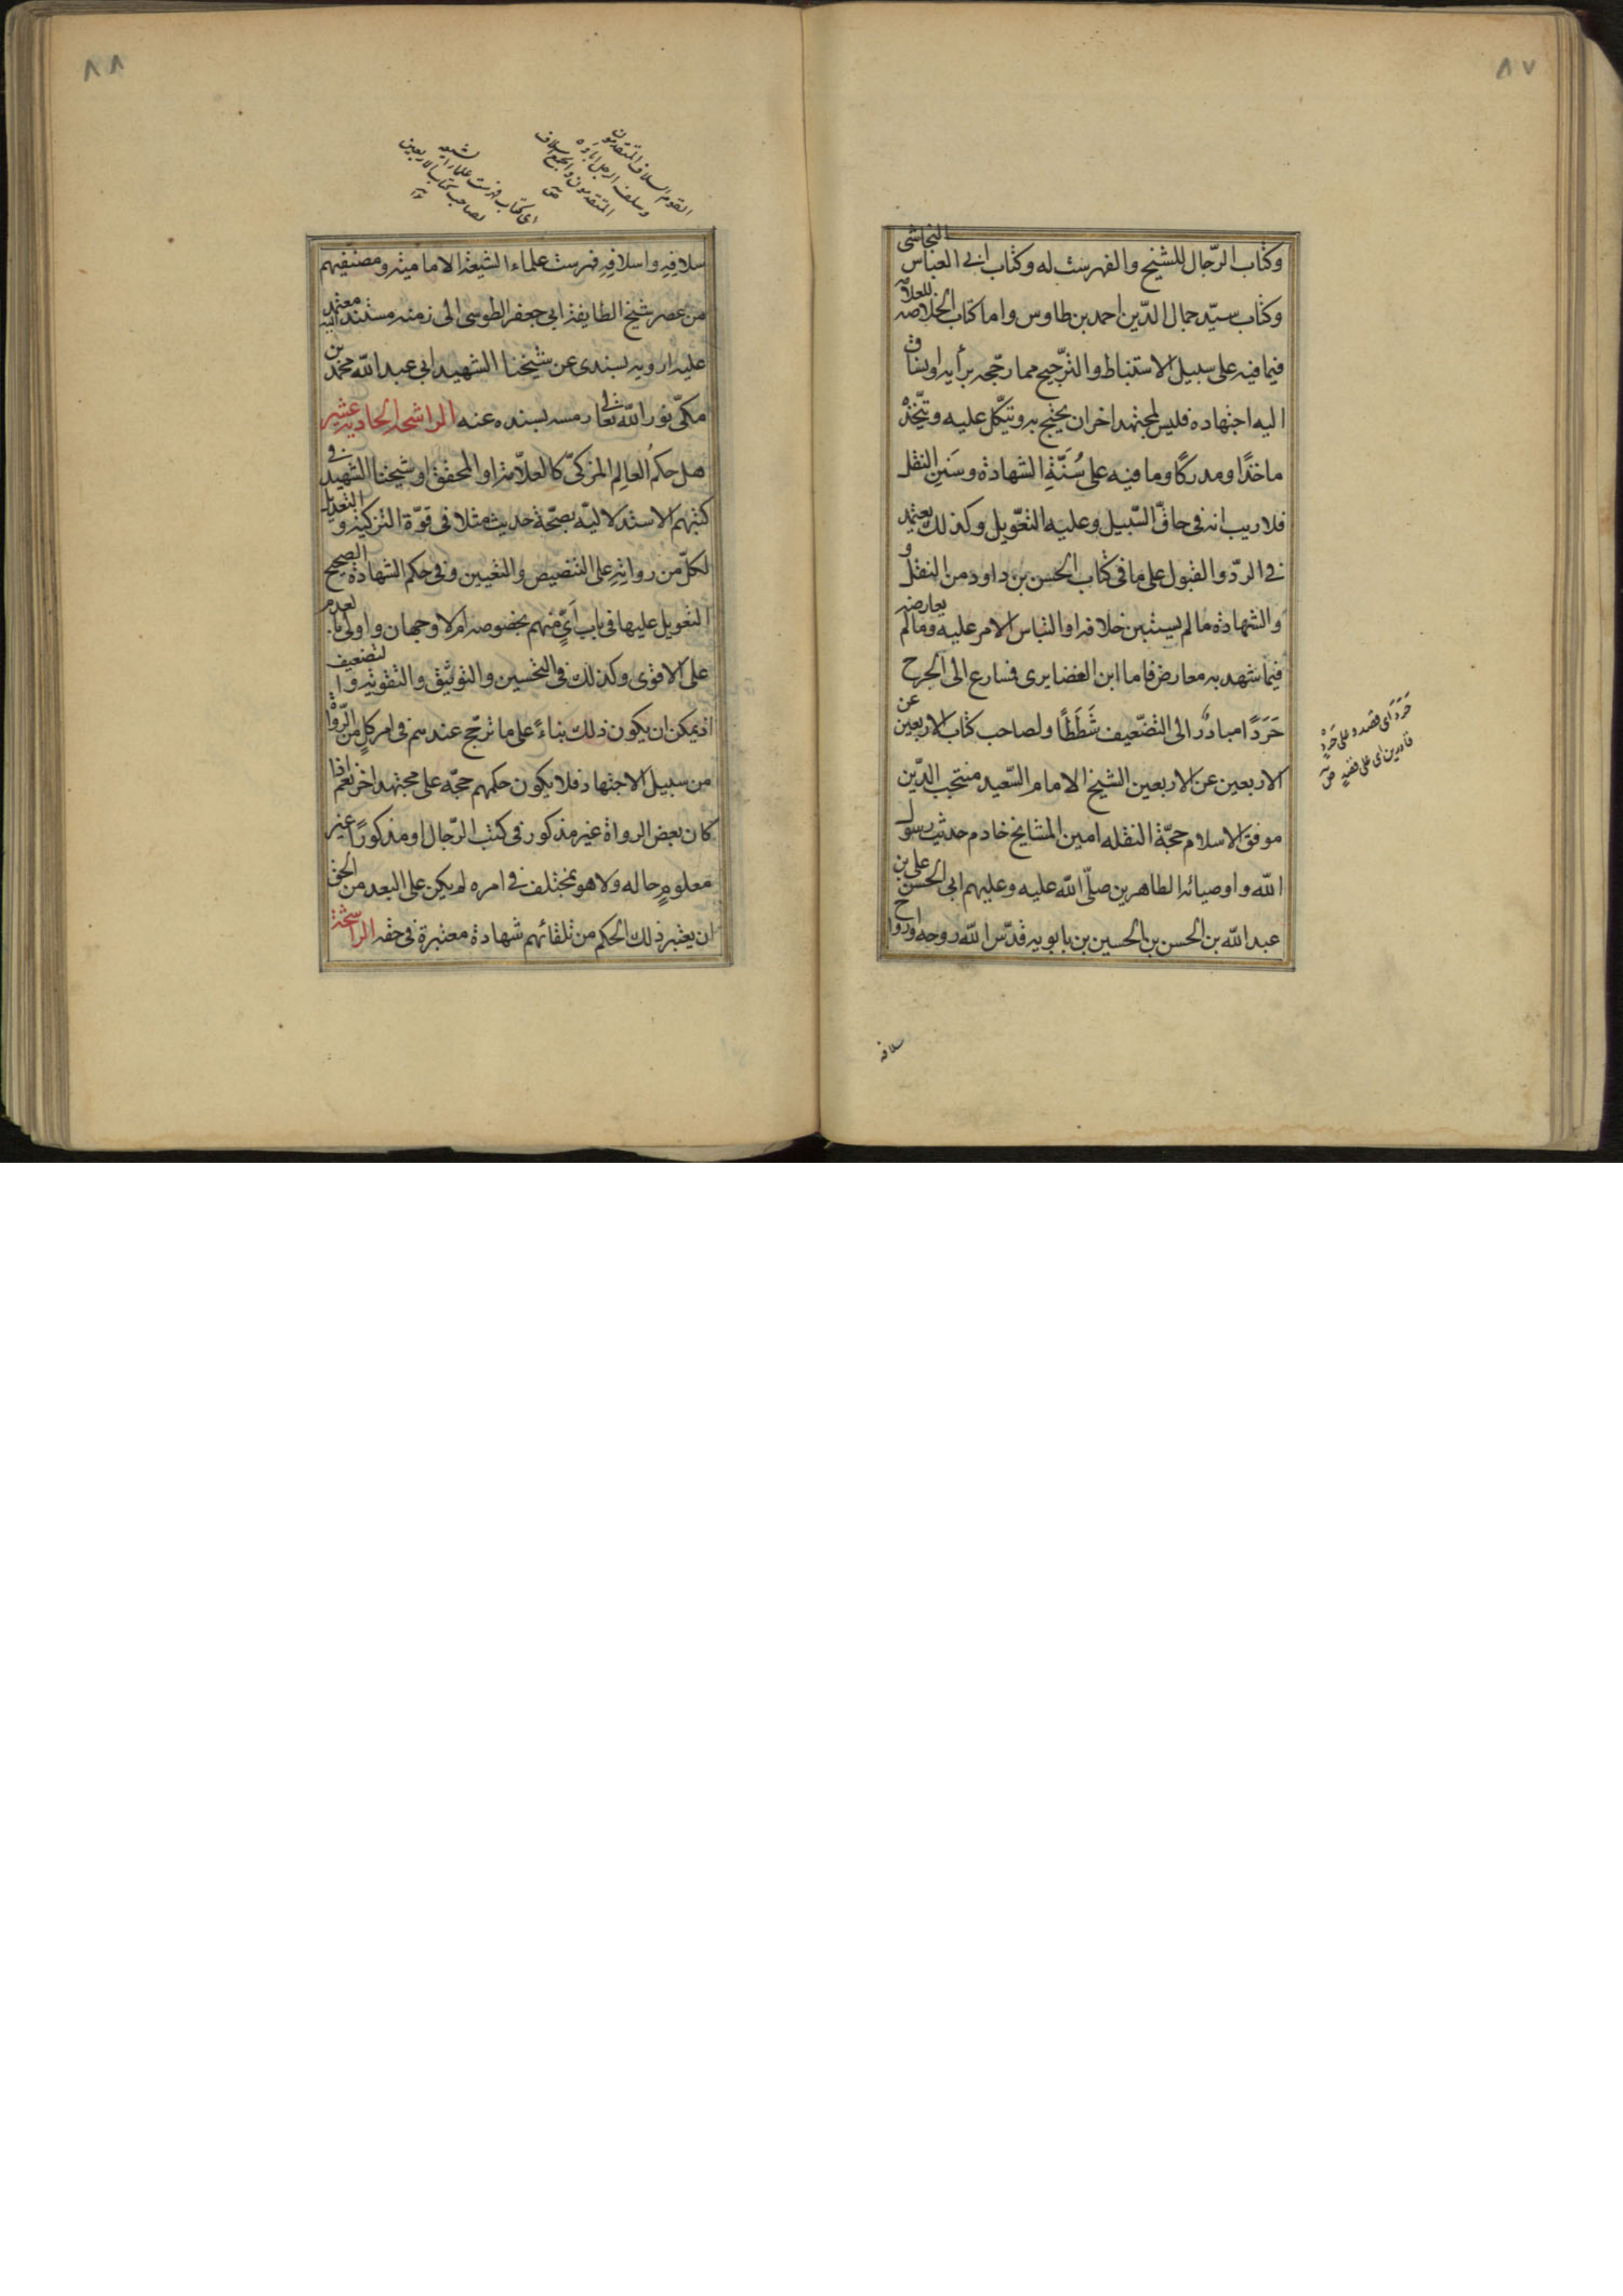 ٨٧
وكتاب الرّجال للشيخ والفهرست له وكتاب ابى العباس النجاشى
وكتاب سيّد جمال الدّين احمد بن طاوس واما كتاب الخلاصه للعلامه
فيما فيه على سبيل الاستنباط والترّجيح مما رجّحه برأيه او بناق
اليه اجتهاده فليس لمجتهد اخر ان يحتج به ويتّكل عليه ويتّخذه
ماخذًا ومدركًا وما فيه على سُنّةِ الشهادة وسَنَنِ النقل
فلا ريب انه فى حاقّ السّبيل وعليه التعّويل وكذلك يعتمد
فى الردّ والقبول على ما فى كتاب الحسن بن داود من النقل و
والشهادة ما لم يستبن خلافه او التباس الامر عليه وما لم يعارضه
فيما شهد به معارض فاما ابن الغضايرى فسارع الى الجرح
حَرَدًا مبادرٌ الى التضّعيف شَطَطًا ولصاحب كتاب الاربعين عن
الاربعين عن الاربعين الشيخ الامام السّعيد منتجب الدّين
موفق الاسلام حجّة النقله امين المشايخ خادم حديث رسول
الله واوصيائه الطاهرين صلّى الله عليه وعليهم ابى الحسن على بن
عبد الله بن الحسن بن الحسين بن بابويه قدّس الله روحه وارواح
حَرَدَ اى قصد وعلى حَردٍ
قادرين اى على قصدٍ
سلافه
٨٨
القوم السلاف المتقدمون
وسلف الرجل اباؤه
المتقدمون والجمع اسلاف
اى كتاب فهرست علماء الشيعه
لصاحب كتاب الاربعين
سلافِهِ واسلافِهِ فهرست علماء الشيعة الاماميّة ومصنّفيهم
من عصر شيخ الطايفة ابى جعفر الطوسى الى زمنه مستند اليه معتمد
عليه ارويه بسندى عن شيخنا الشهيد ابى عبد الله محمّد بن
مكىّ نور الله تعالى رمسه بسنده عنه الراشحة الحادية عشر
هل حكمُ العالِم المزكىّ كالعلاّمة او المحقق او شيخنا الشهيد فى
كتبهم الاستدلاليّه بصحّة حديث مثلا فى قوّة التزكية والتعديل
لكلّ من رواتِهِ على التنصيص والتعيين وفى حكم الشهادة الصحيح
التعويل عليها فى باب اَىٍّ منهم بخصوصه ام لا وجهان واولى بالعدم
على الاقوى وكذلك فى التحسين والتوثيق والتقوية والتضعيف
اذ يمكن ان يكون ذلك بناءً على ما ترجّح عندهم فى امر كلٍ من الرّواة
من سبيل الاجتهاد فلا يكون حكمهم حجّه على مجتهد اخر نعم اذا
كان بعض الرواة غير مذكور فى كتب الرّجال او مذكورًا غير
معلومٍ حاله ولا هو بمختلف فى امره لم يكن على البعد من الحق
ان يعتبر ذلك الحكم من تلقائهم شهادة معتبرة فى حقه الراشحة